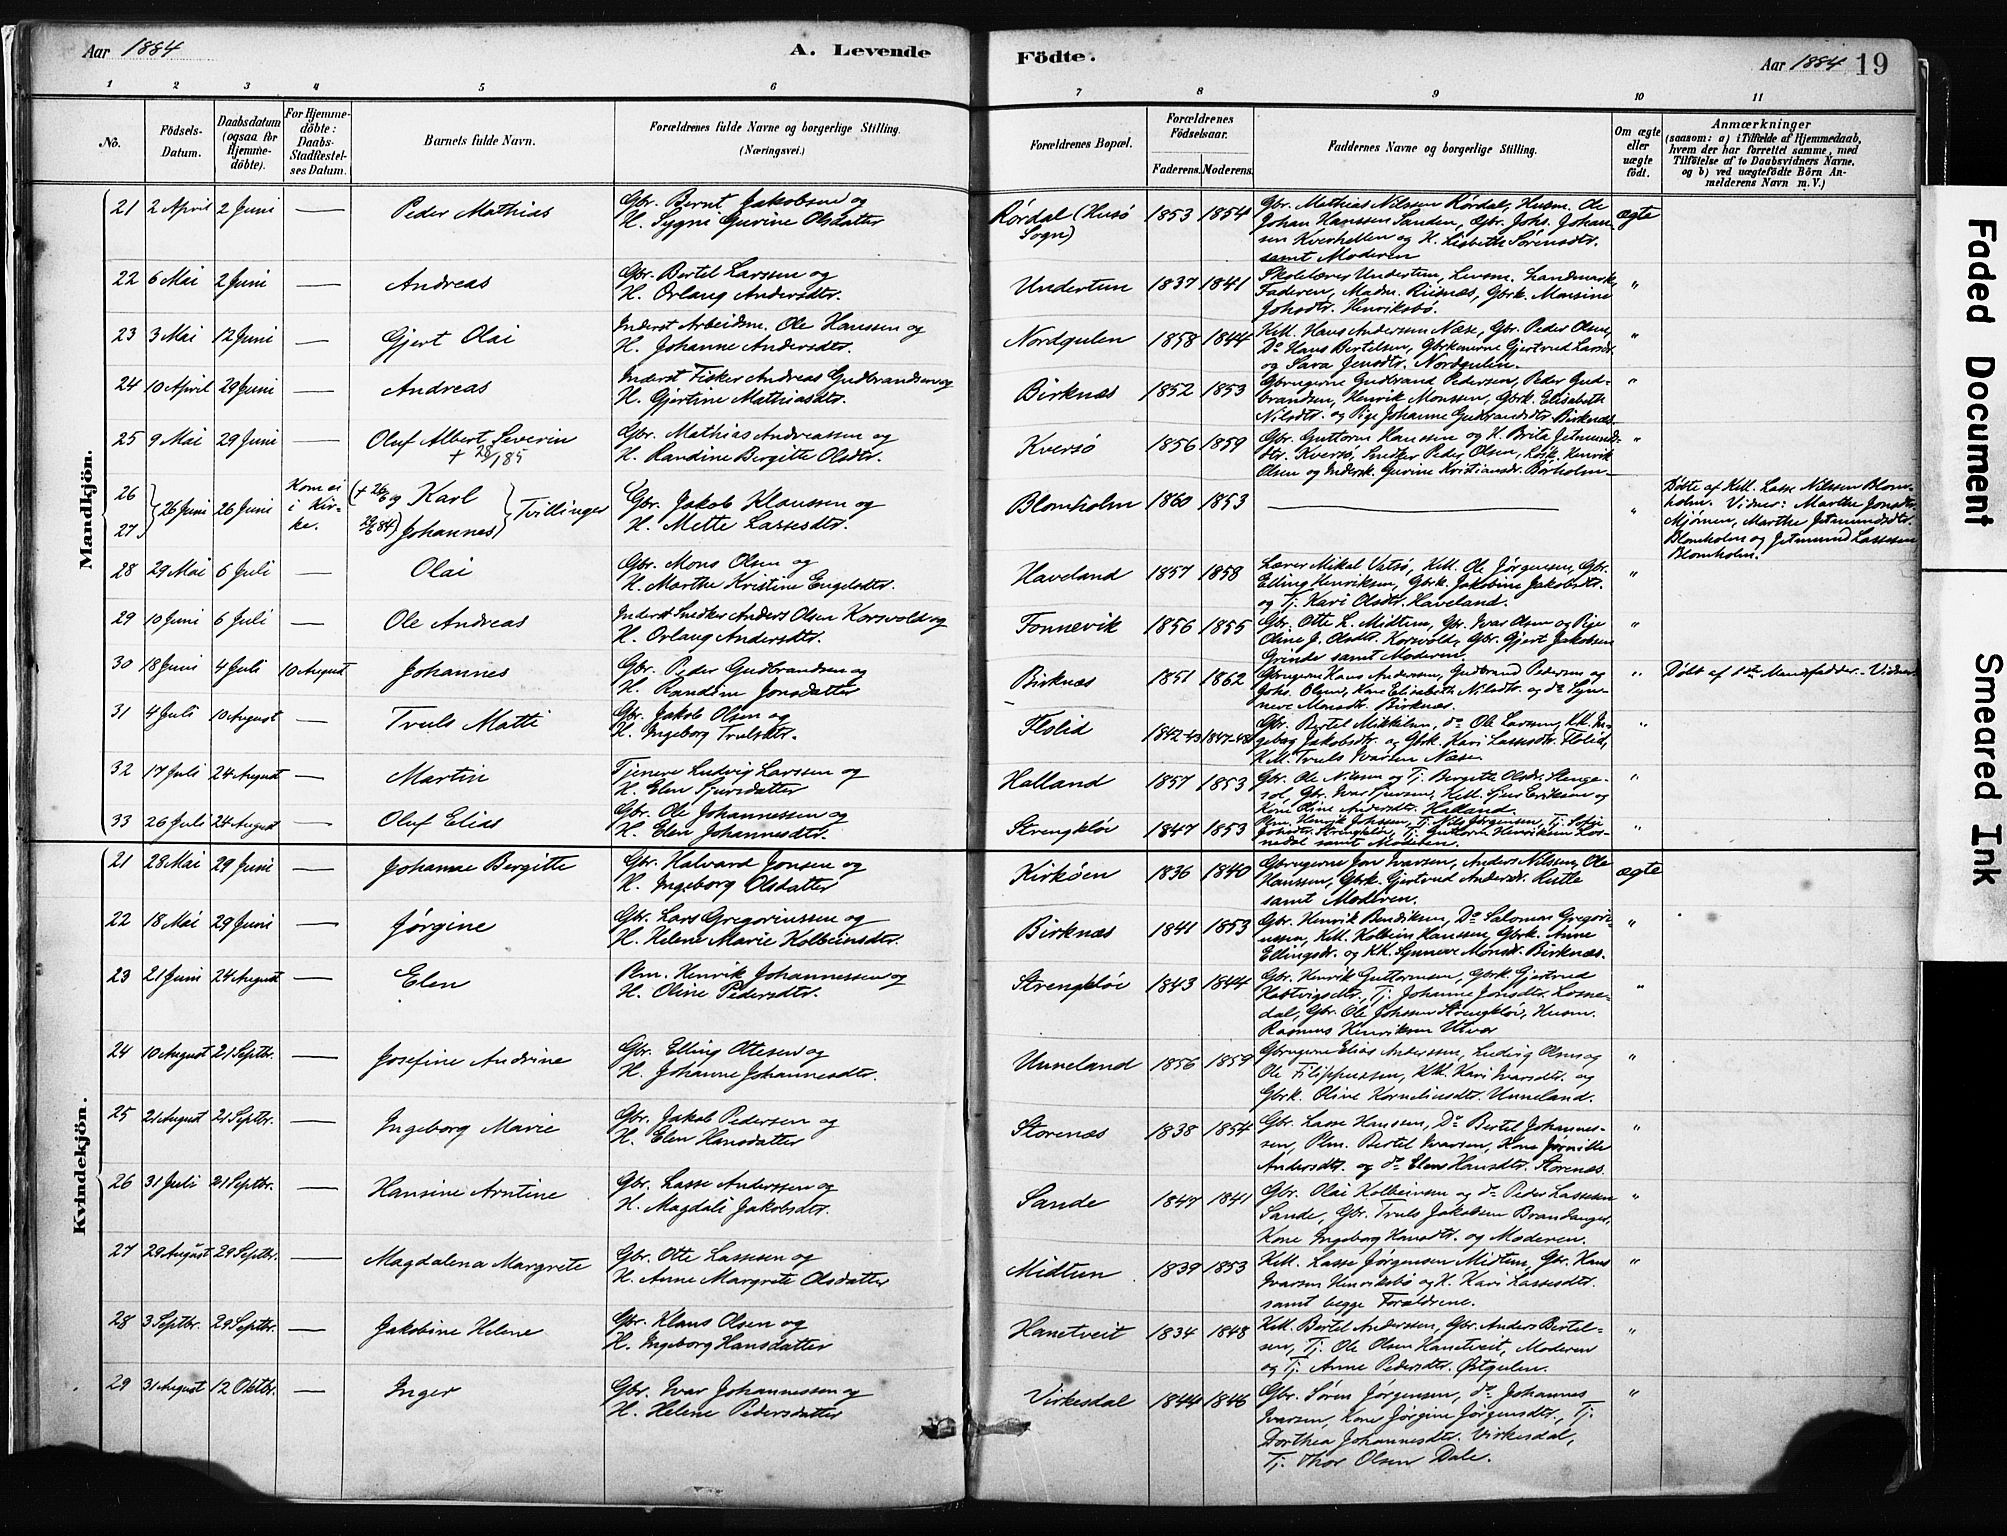 Aar 1884
A. Levende
Födte.
Aar 1884
19
1 2 3 4 5 6 7 8 9 10 11
No.
Födsels-
Datum.
Daabsdatum
(ogsaa for
Hjemme-
döbte).
For Hjemme-
döbte:
Daabs-
Stadfæstel-
ses Datum.
Barnets fulde Navn.
Forældrenes fulde Navne og borgerlige Stilling.
(Næringsvei.)
Forældrenes Bopæl.
Forældrenes
Födselsaar.
Faderens. Moderens.
Faddernes Navne og borgerlige Stilling.
Om ægte
eller
uægte
födt.
Anmærkninger
(saasom: a) i Tilfælde af Hjemmedaab,
hvem der har forrettet samme, med
Tilföielse af to Daabsvidners Navne.
og b) ved uægtefödte Börn An-
melderens Navn m. V.)
Mandkjön.
21 2 April 2 Juni — Peder Mathias
Gbr. Bernt Jakobsen og
H. Sygni Gurine Olsdatter
Rørdal (Husø
Sogn)
1853 1854
Gbr. Mathias Nilssen Rørdal, Husm. Ole
Johan Hanssen Sanden, Gbr. Johs. Johan-
sen Kverhellen og K. Lisbeth Sørensdtr.
samt Moderen
ægte
22 6 Mai 2 Juni — Andreas
Gbr. Bertel Larssen og
H. Orlaug Andersdtr.
Undertun 1837 1841
Skolelærer Undertun, Lensm. Landmark,
Faderen, Madm. Risnæs, Gbrk. Monsine
Johsdtr. Henriksbø.
"
23 3 Mai 12 Juni — Gjert Olai
Inderst Arbeidsm. Ole Hanssen og
H. Johanne Andersdtr.
Nordgulen 1858 1844
Kell. Hans Andersen Næse, Gbr. Peder Olsen,
Do Hans Bertelsen, Gbrkonerne Gjertrud Larsdtr.
og Sara Jensdtr. Nordgulen.
"
24 10 April 29 Juni — Andreas
Inderst Fisker Andreas Gudbrandsen og
H. Gjertine Mathiasdtr.
Birknæs 1852 1853
Gbrugerne Gudbrand Pedersen, Peder Gud-
brandsen, Henrik Monssen, Gbrk. Elisabeth
Nilsdtr. og Pige Johanne Gudbrandsdtr. Birknæs.
"
25 9 Mai 29 Juni — Oluf Albert Severin
+ 28/1 85
Gbr. Mathias Andreassen og
H. Randine Bergitte Olsdtr.
Kversø 1856 1859
Gbr. Guttorm Hanssen og K. Brita Jetmunds-
dtr. Kversø, Snedker Peder Olsen, Løsk. Henrik
Olsen og Indersk. Gurine Kristiansdtr. Birholm
"
26
27
26 Juni 26 Juni
Kom ei
i Kir-
ke.
Karl
Johannes
Tvillinger
Gbr. Jakob Klaussen og
H. Mette Lassesdtr.
Blomholm 1860 1853 —
"
Døbte af Kell. Lasse Nilssen Blom-
holm. Vidner: Marthe Jonsdtr.
Mjømen, Marthe Jetmundsdtr.
Blomholm og Jetmund Lassesen
Blomholm.
28 29 Mai 6 Juli — Olai
Gbr. Mons Olsen og
H. Marthe Kristine Engelsdtr.
Haveland 1857 1858
Lærer Mikal Vatsø, Kell. Ole Jørgensen, Gbr.
Elling Henriksen, Gbrk. Jakobine Jakobsdtr.
og Tj. Kari Olsdtr. Haveland.
"
29 10 Juni 6 Juli — Ole Andreas
Inderst Snedker Anders Olsen Korsvold og
H. Orlaug Andersdtr.
Fonnevik 1856 1855
Gbr. Otte L. Midtun, Gbr. Ivar Olsen og Pige
Oline J. Olsdtr. Korsvold, Gbr. Gjert Jakobsen
Grinde samt Moderen
"
30 18 Juni 4 Juli 10 August Johannes
Gbr. Peder Gudbrandsen og
H. Randine Jonsdatter
Birknæs 1851 1862
Gbrugerne Hans Andersen, Gudbrand Pedersen og
Johs. Olsen, Kone Elisabeth Nilsdtr. og do Syn-
neve Monsdtr. Birknæs.
"
Døbt af 1ste Mandfadder. Vidner
31 4 Juli 10 August — Truls Matti
Gbr. Jakob Olsen og
H. Ingeborg Trulsdtr.
Flolid 1842-43 1847-48
Gbr. Bertel Mikkelsen, do Ole Larsen, KK. In-
geborg Jakobsdtr. og Gbrk. Kari Lassesdtr. Flolid,
K.M. Truls Ivarsen Næse
"
32 17 Juli 24 August — Martin
Tjenere Ludvig Larssen og
H. Elen Sjursdatter
Halland 1857 1853
Gbr. Ole Nilssen og Tj. Bergitte Olsdtr. Stenge-
sol, Gbr. Ivar Sjursen, Kell. Sjur Eriksen og
Kone Oline Andersdtr. Halland.
"
33 26 Juli 24 August — Oluf Elias
Gbr. Ole Johannessen og
H. Elen Johannesdtr.
Strengkløi 1847 1853
Plm. Henrik Johssen, Tj. Nils Jørgensen, Tj. Sofie
Johsdtr. Strengkløi, Tj. Guttorm Henriksen Los-
nedal samt Moderen.
"
Kvindekjön.
21 28 Mai 29 Juni — Johanne Bergitte
Gbr. Halvard Jonsen og
H. Ingeborg Olsdatter
Kirkøen 1836 1840
Gbrugerne Jon Ivarsen, Anders Nilssen, Ole
Hanssen, Gbrk. Gjertrud Andersdtr. Rutle
samt Moderen.
ægte
22 18 Mai 29 Juni — Jørgine
Gbr. Lars Gregoriussen og
H. Helene Marie Kolbeinsdtr.
Birknæs 1841 1853
Gbr. Henrik Bendiksen, Do Salomon Gregori-
ussen, Kell. Kolbein Hanssen, Gbrk. Anne
Ellingsdtr. og KK. Synneve Monsdtr. Birknæs.
"
23 21 Juni 24 August — Elen
Plm. Henrik Johannessen og
H. Oline Pedersdtr.
Strengkløi 1843 1844
Gbr. Henrik Guttormsen, Gbrk. Gjertrud
Hartvigsdtr., Tj. Johanne Jonsdtr. Losne-
dal, Gbr. Ole Johssen Strengkløi, Husm.
Rasmus Henriksen Utvær
"
24 10 August 21 Septbr. — Josefine Andrine
Gbr. Elling Ottesen og
H. Johanne Johannesdtr.
Unneland 1856 1859
Gbrugerne Elias Anderssen, Ludvig Olsen og
Ole Filippussen, KK. Kari Ivarsdtr. og
Gbrk. Oline Korneliusdtr. Unneland.
"
25 21 August 21 Septbr. — Ingeborg Marie
Gbr. Jakob Pedersen og
H. Elen Hansdatter
Storenæs 1838 1854
Gbr. Lasse Hanssen, Do Bertel Johannes-
sen, Plm. Bertel Ivarsen, Kone Jørnille
Andersdtr. og do Elen Hansdtr. Storenæs.
"
26 31 Juli 21 Septbr. — Hansine Arntine
Gbr. Lasse Anderssen og
H. Magdali Jakobsdtr.
Sande 1847 1841
Gbr. Olai Kolbeinsen og do Peder Lassesen
Sande, Gbr. Truls Jakobsen Brandanger,
Kone Ingeborg Hansdtr. og Moderen.
"
27 29 August 29 Septbr. — Magdalena Margrete
Gbr. Otte Lassesen og
H. Anne Margrete Olsdatter
Midtun 1839 1853
Kell. Lasse Jørgensen Midtun, Gbr. Hans
Ivarsen Henriksbø og K. Kari Lassesdtr.
samt begge Forældrene.
"
28 3 Septbr. 29 Septbr. — Jakobine Helene
Gbr. Klaus Olsen og
H. Ingeborg Hansdatter
Hanetveit 1834 1848
Kell. Bertel Anderssen, Gbr. Anders Bertel-
sen, Tj. Ole Olsen Hanetveit, Moderen
og Tj. Anne Pedersdtr. Østgulen.
"
29 31 August 12 Oktbr. — Inger
Gbr. Ivar Johannessen og
H. Helene Pedersdatter
Virkesdal 1844 1846
Gbr. Søren Jørgensen, do Johannes
Ivarsen, Kone Jørgine Jørgensdtr., Tj.
Dorthea Johannesdtr. Virkesdal,
Tj. Thor Olsen Dale.
"
Faded Document
Smeared Ink